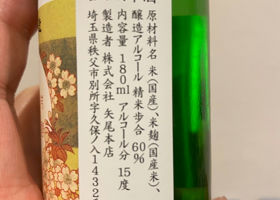 原材料名 米(国産)、米麹(国産米)、
醸造アルコール 精米歩合 60%
内容量 180ml アルコール分 15度
製造者 株式会社 矢尾本店
埼玉県秩父市別所字久保ノ入1432